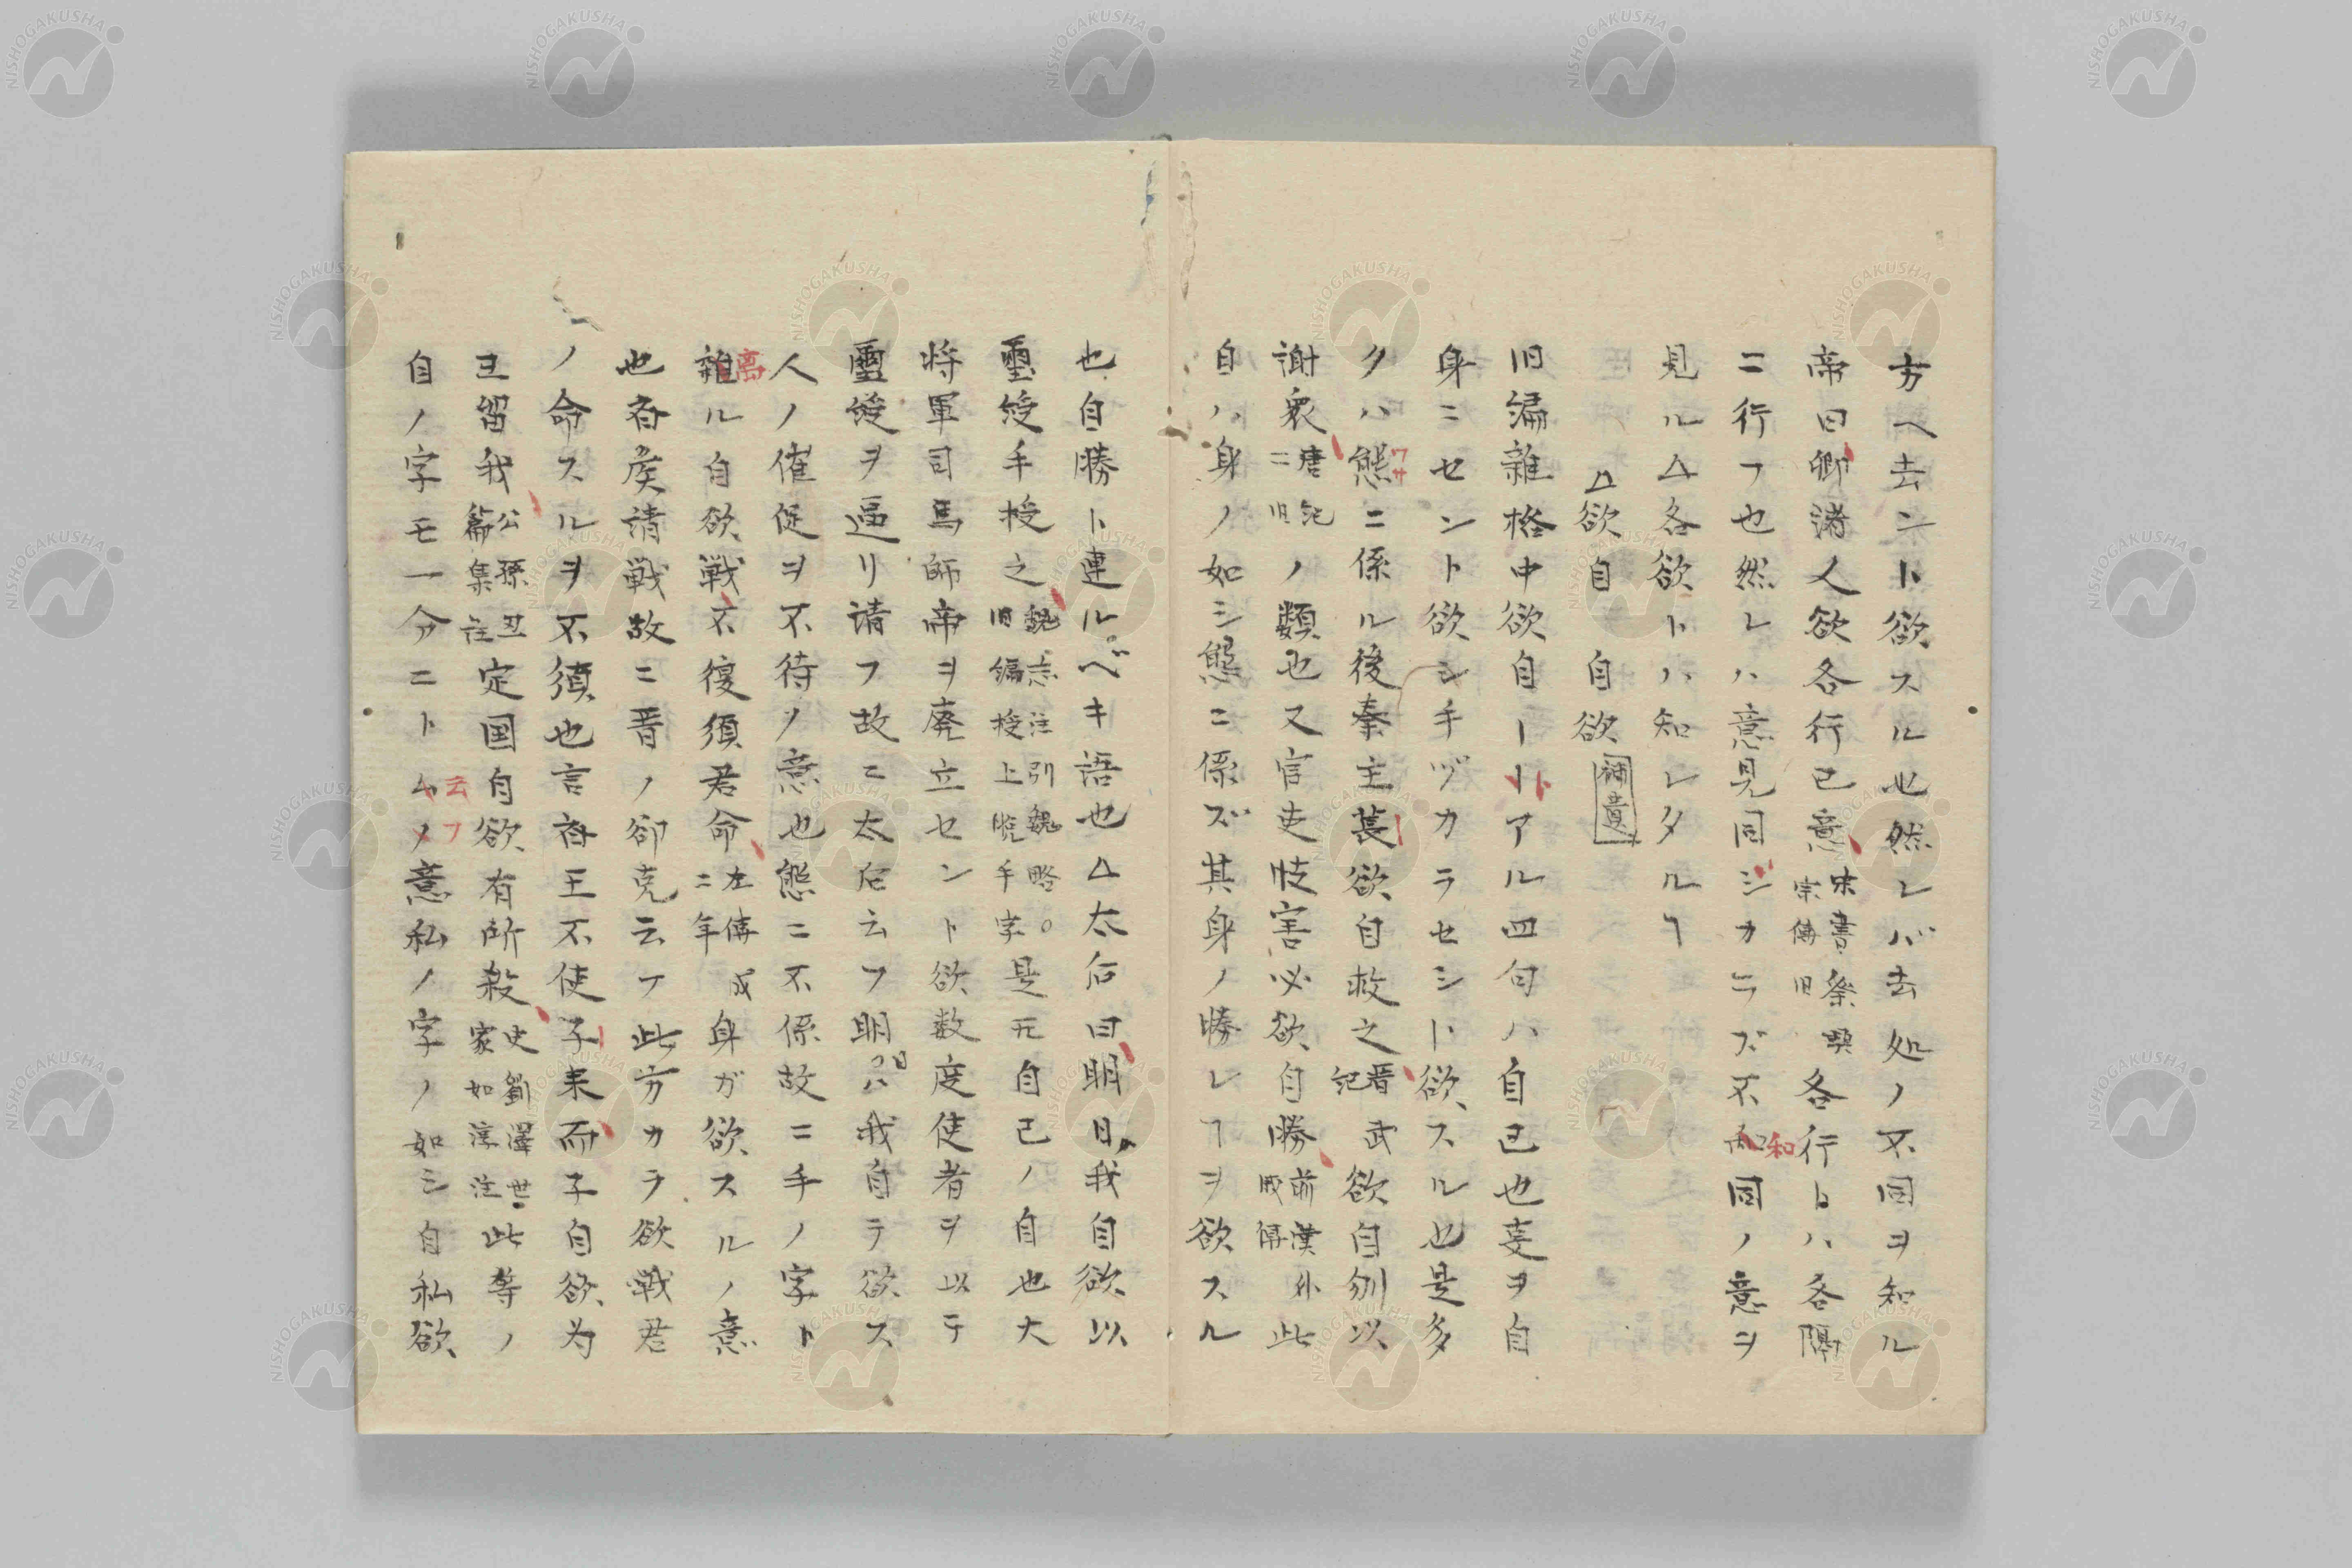 方ヘ去ント欲スル也然レバ去処ノ不同ヲ知ル
帝曰卿諸人欲各行己意宋書蔡興宗傳旧各行トハ各隔
ニ行フ也然レハ意見同ジカラズ不和同ノ意ヲ
見ル△各欲トハ知レタルヿ
△欲自 自欲 補意
旧編雜格中欲自ーートアル四句ハ自己也叓ヲ自
身ニセント欲シ手ヅカラセシト欲スル也是多
クハ態ワサニ係ル後秦主萇欲自救之晋記武欲自刎以
謝衆唐記二旧ノ類也又官吏忮害必欲自勝前漢外戚傳此
自ハ身ノ如シ態ニ係ズ其身ノ勝レヿヲ欲スル
也自勝ト連ルベキ語也△太后曰明日我自欲以
璽綬手授之魏志注引魏略。旧編授上脱手字是元自己ノ自也大
将軍司馬師帝ヲ廃立セント欲数度使者ヲ以テ
璽綬ヲ逼リ請フ故ニ太后云フ明日ハ我自ラ欲ス
人ノ催促ヲ不待ノ意也態ニ不係故ニ手ノ字ト
離ル自欲戦不復須君命左傳成二年身ガ欲スルノ意
也斉侯請戦故ニ晋ノ郤克云フ此方カラ欲戦君
ノ命スルヲ不須也言斉王不使子来而子自欲为
王留我公孫丑篇集註定国自欲有所殺史劉澤世家如淳注此等ノ
自ノ字モ一分ニト云フ意私ノ字ノ如シ自私欲
NISHOGAKUSHA